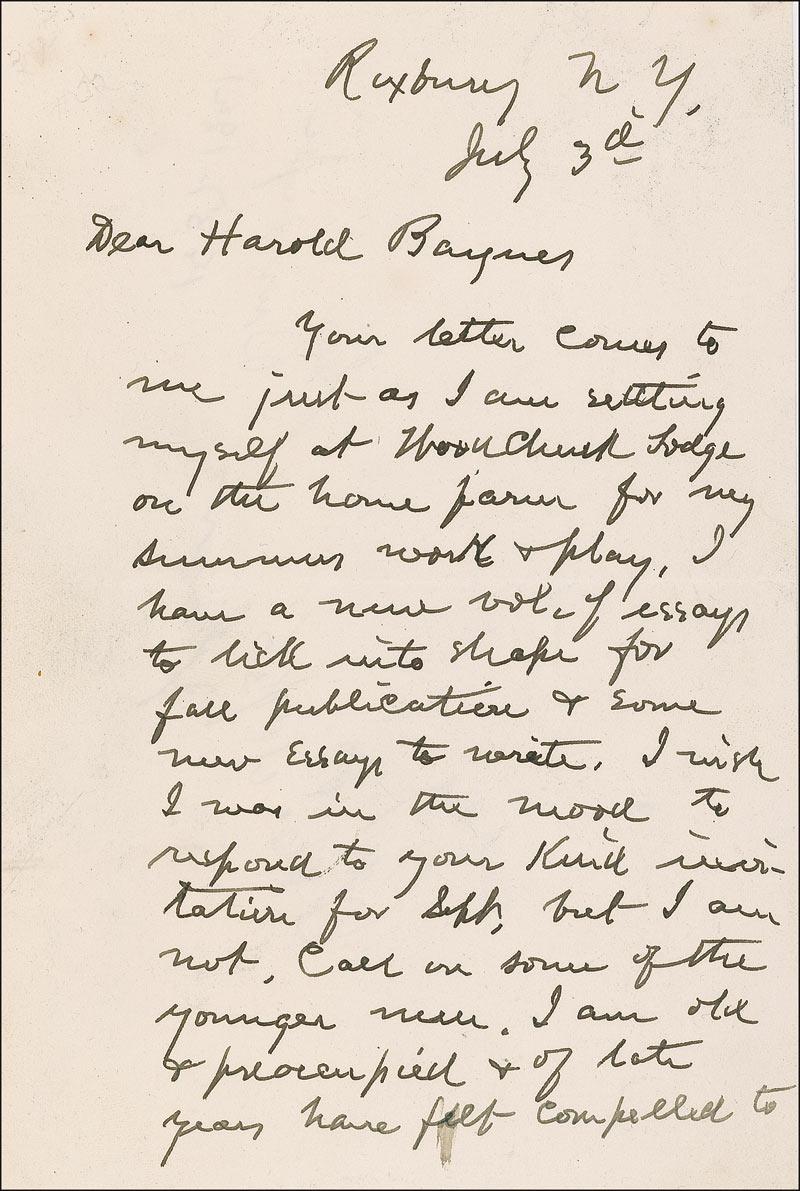 Roxbury N Y,
July 3d
Dear Harold Baynes
Your letter comes to
me just as I am settling
myself at WoodChuck Lodge
on the home farm for my
summer work & play, I
have a new vol, of essays
to lick into shape for
fall publication & some
new essays to write. I wish
I was in the mood to
respond to your kind invi-
tation for Sept, but I am
not, Call on some of the
younger men. I am old
& preoccupied & of late
years have felt compelled to